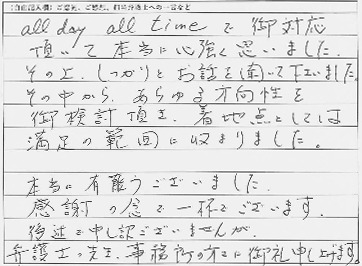 (自由記入欄)ご意見、ご感想、担当弁護士への一言など
all day all timeで御対応
頂いて本当に心強く思いました。
その上、しっかりとお話を聞いて下さいました
その中から、あらゆる方向性を
御検討頂き、着地点としては
満足の範囲に収まりました。
本当に有難うございました。
感謝の念で一杯でございます。
後述で申し訳ございませんが、
弁護士の先生、事務所の方に御礼申し上げます。